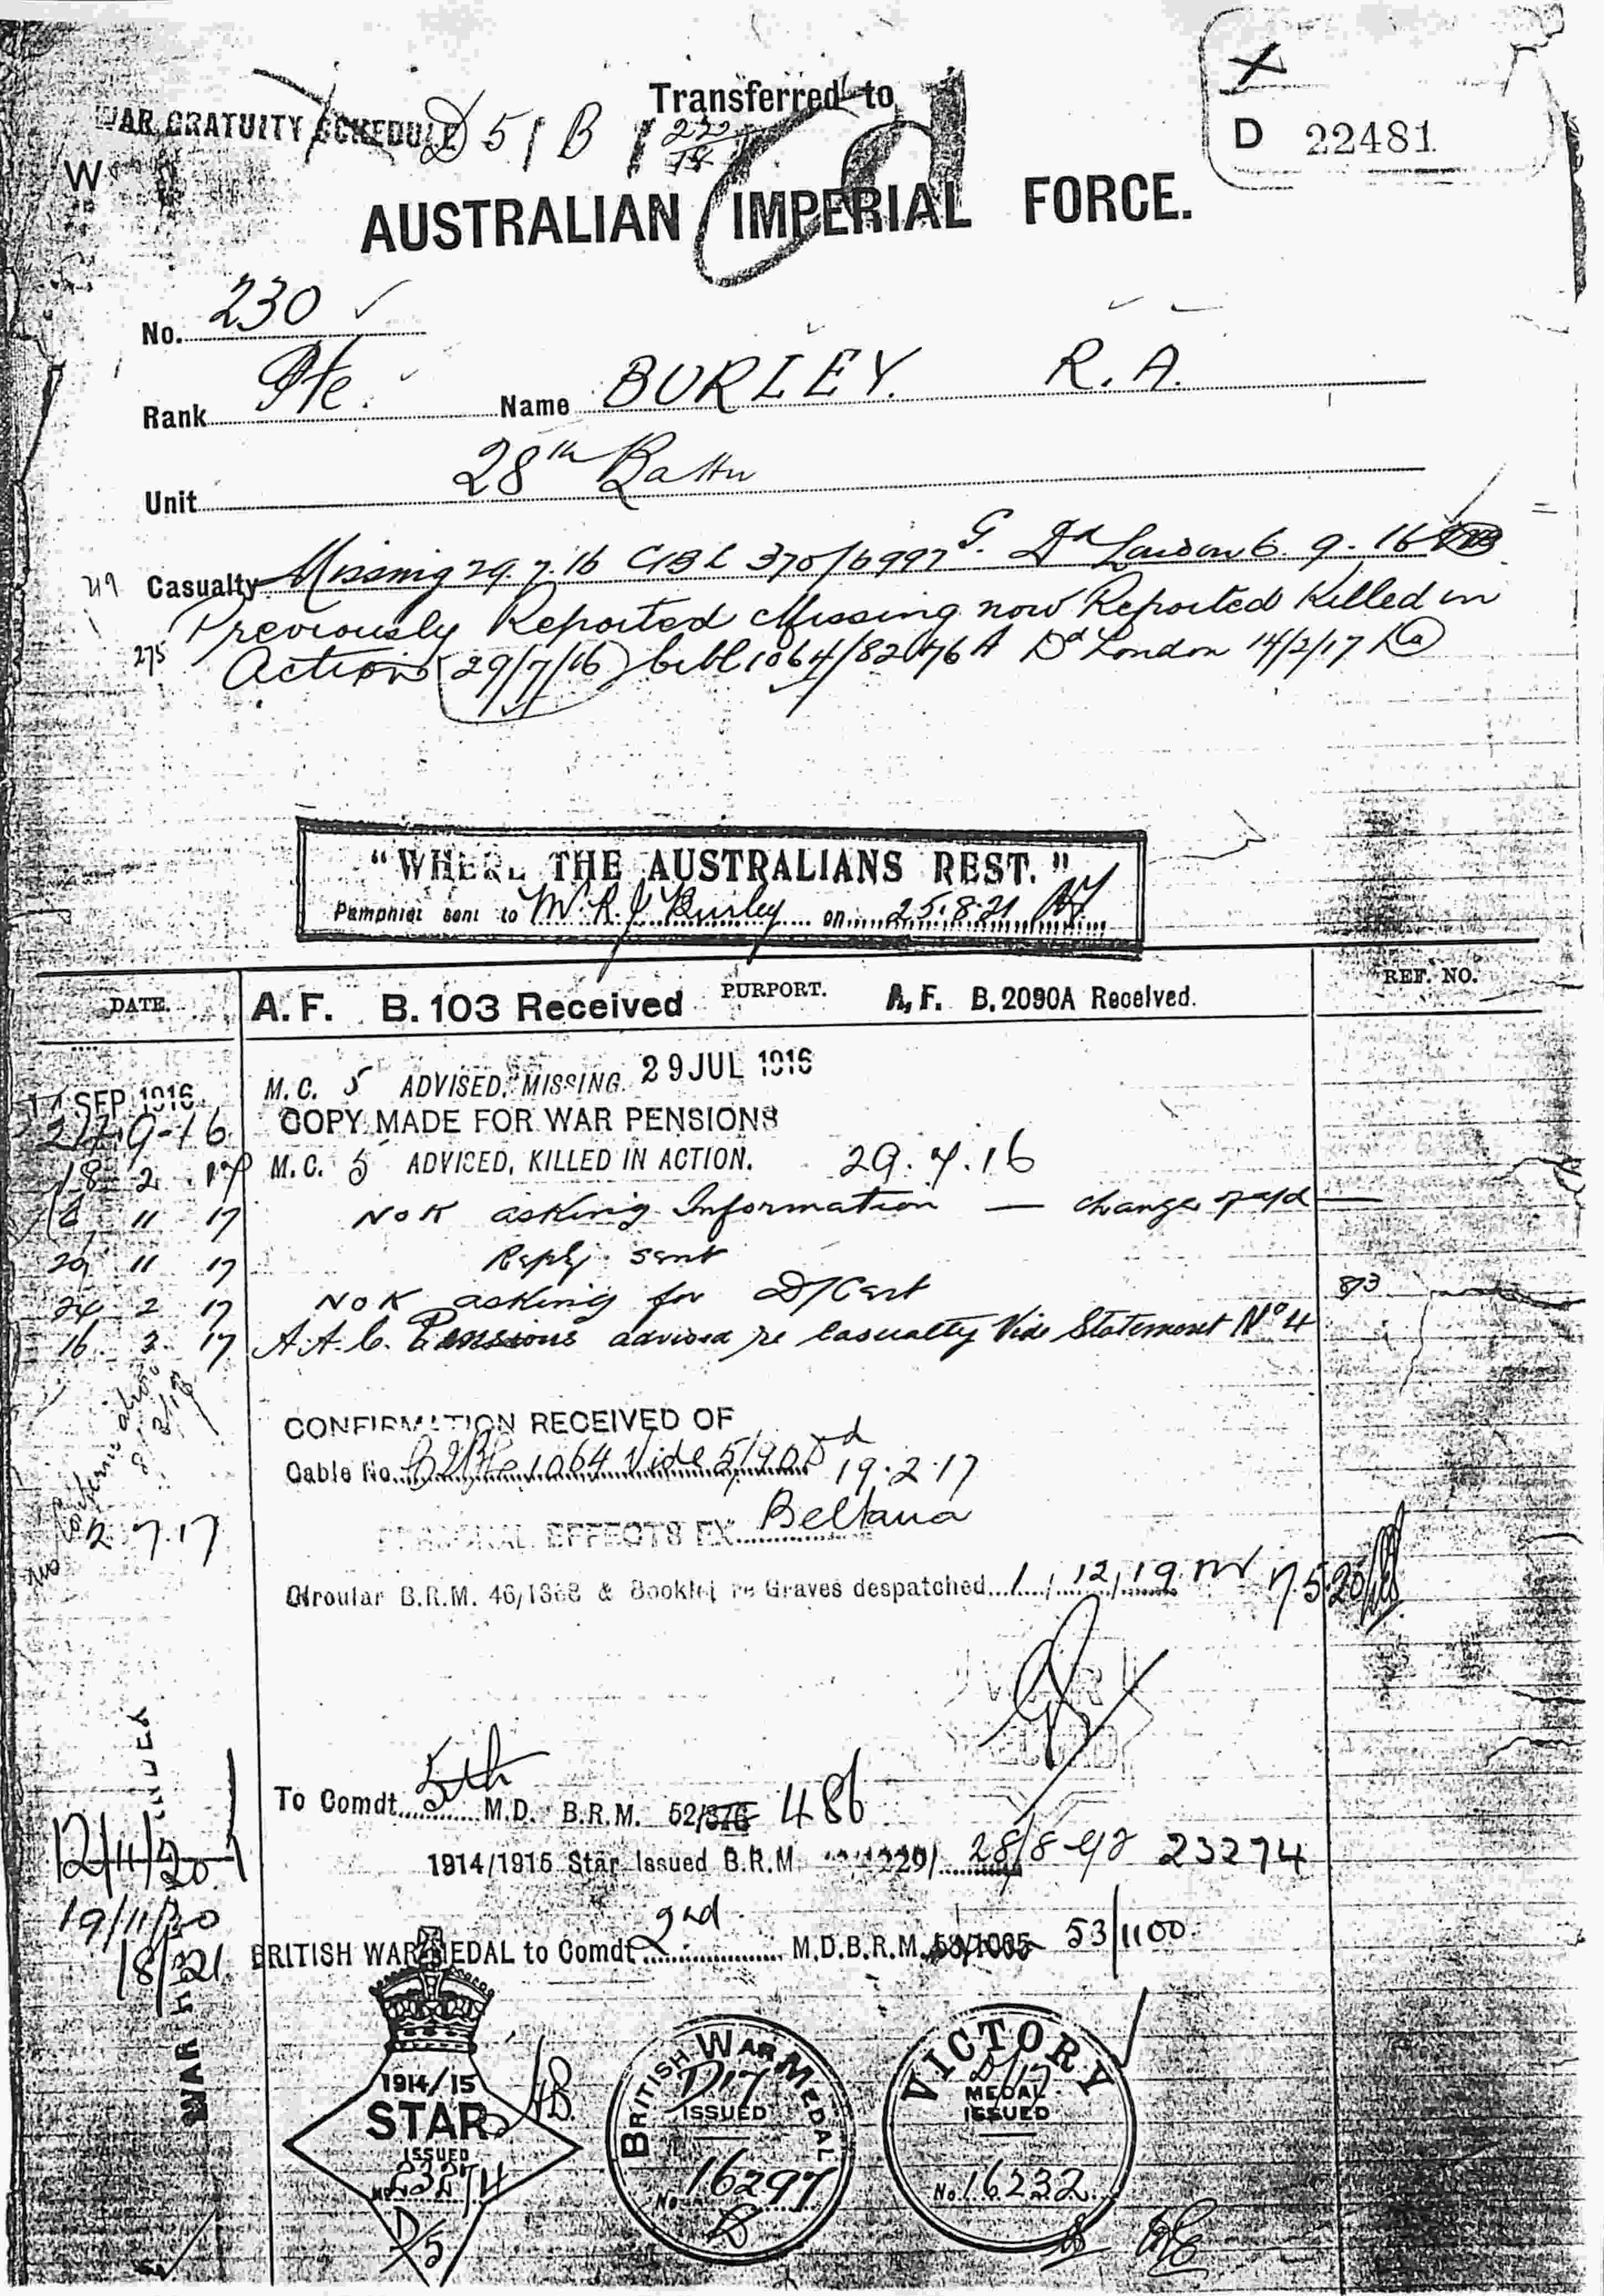 Transferred to
WAR GRATUITY SCHEDULE D 51 B
X
D 22481
AUSTRALIAN IMPERIAL FORCE.
No. 230
Rank Pte. Name BURLEY. R. A.
Unit 28th Battn
219 Casualty Missing 29.7.16 CBL 370/6997 G. Dd London 6.9.16
Previously Reported Missing now Reported Killed in
275 Action (29/7/16) Cbl 1064/82076 A Dd London 14/2/17
"WHERE THE AUSTRALIANS REST."
Pamphlet sent to Mr R. J. Burley on 25.8.21
DATE. A. F. B. 103 Received PURPORT. A. F. B. 2090A Received. REF. NO.
SEP 1916 M. C. 5 ADVISED, MISSING. 29 JUL 1916
27.9-16 COPY MADE FOR WAR PENSIONS
18 2 17 M. C. 5 ADVISED, KILLED IN ACTION. 29.7.16
6 11 17 NOK asking Information — change of a/d
29 11 17 Reply sent
24 2 17 NOK asking for D/Cert 873
16 3 17 A.A.C. Pensions advised re Casualty Vide Statement No 4
CONFIRMATION RECEIVED OF
Cable No. 1064 Vide 19.2.17
2.7.17 PERSONAL EFFECTS EX Beltana
Circular B.R.M. 46/1368 & Booklet re Graves despatched 1, 12, 19. 7.5.20
WAR
To Comdt 5th M.D. B.R.M. 52/376 486
12/11/20 1914/1915 Star Issued B.R.M. 28/8-42 23274
19/11/20
18/21 BRITISH WAR MEDAL to Comdt 2nd M.D.B.R.M. 53/1085 53/1100
1914/15
STAR
ISSUED
No. 23274
D/5
BRITISH WAR MEDAL
D17
ISSUED
No. 16297
VICTORY
D/17
MEDAL
ISSUED
No. 16232